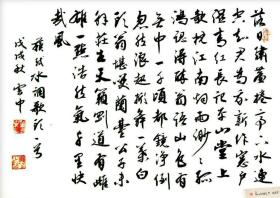 落日繡簾捲亭下水連
空知君為我新作窗戶
濕青紅長記平山堂上
欹枕江南煙雨渺渺沒孤
鴻認得醉翁語山色有
無中一千頃都鏡淨倒碧峰
忽然浪起掀舞一葉白
頭翁堪笑蘭臺公子未
解莊生天籟剛道有雌
雄一點浩然氣千里快
哉風
蘇軾水調歌頭一首
戊戌秋雪中